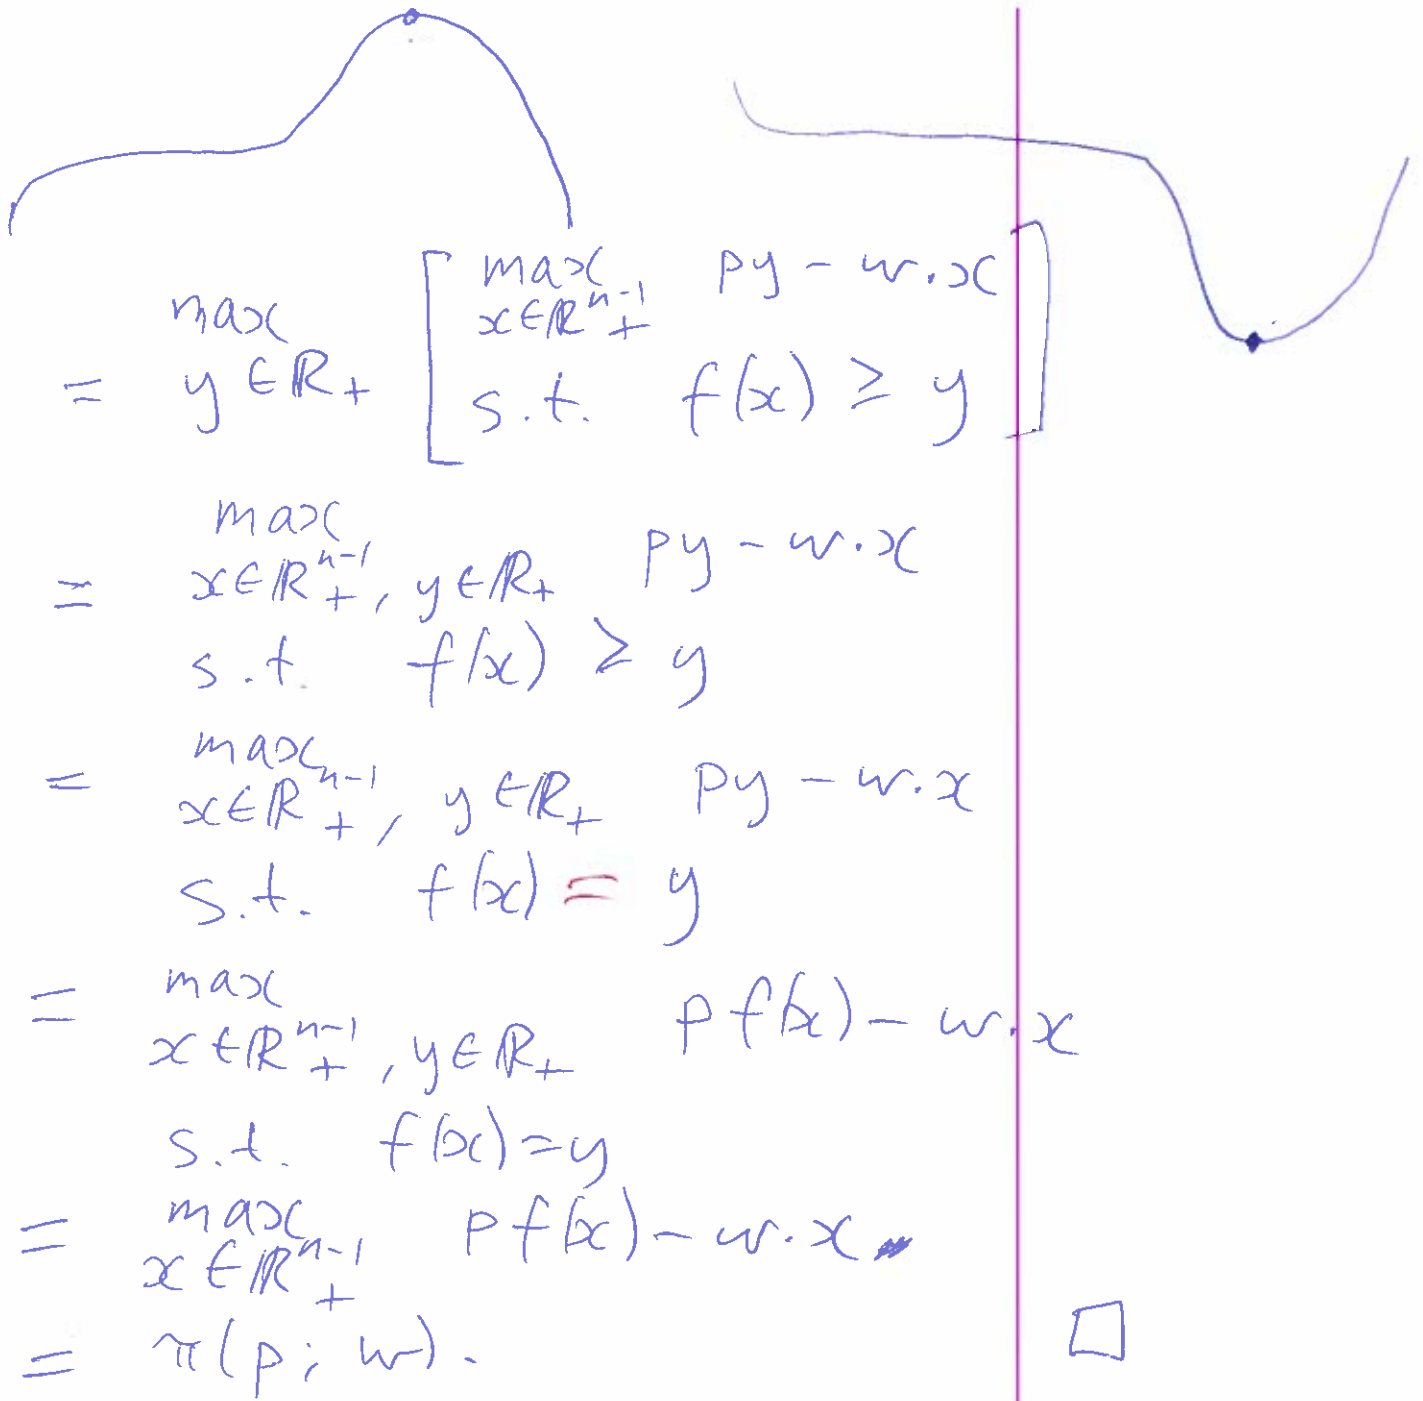 = max y ∈ ℝ₊ [ max x∈ℝ₊ⁿ⁻¹ py - w·x
s.t. f(x) ≥ y ]
= max x∈ℝ₊ⁿ⁻¹, y∈ℝ₊ py - w·x
s.t. f(x) ≥ y
= max x∈ℝ₊ⁿ⁻¹, y∈ℝ₊ py - w·x
s.t. f(x) = y
= max x∈ℝ₊ⁿ⁻¹, y∈ℝ₊ pf(x) - w·x
s.t. f(x) = y
= max x∈ℝ₊ⁿ⁻¹ pf(x) - w·x.
= π(p; w). □